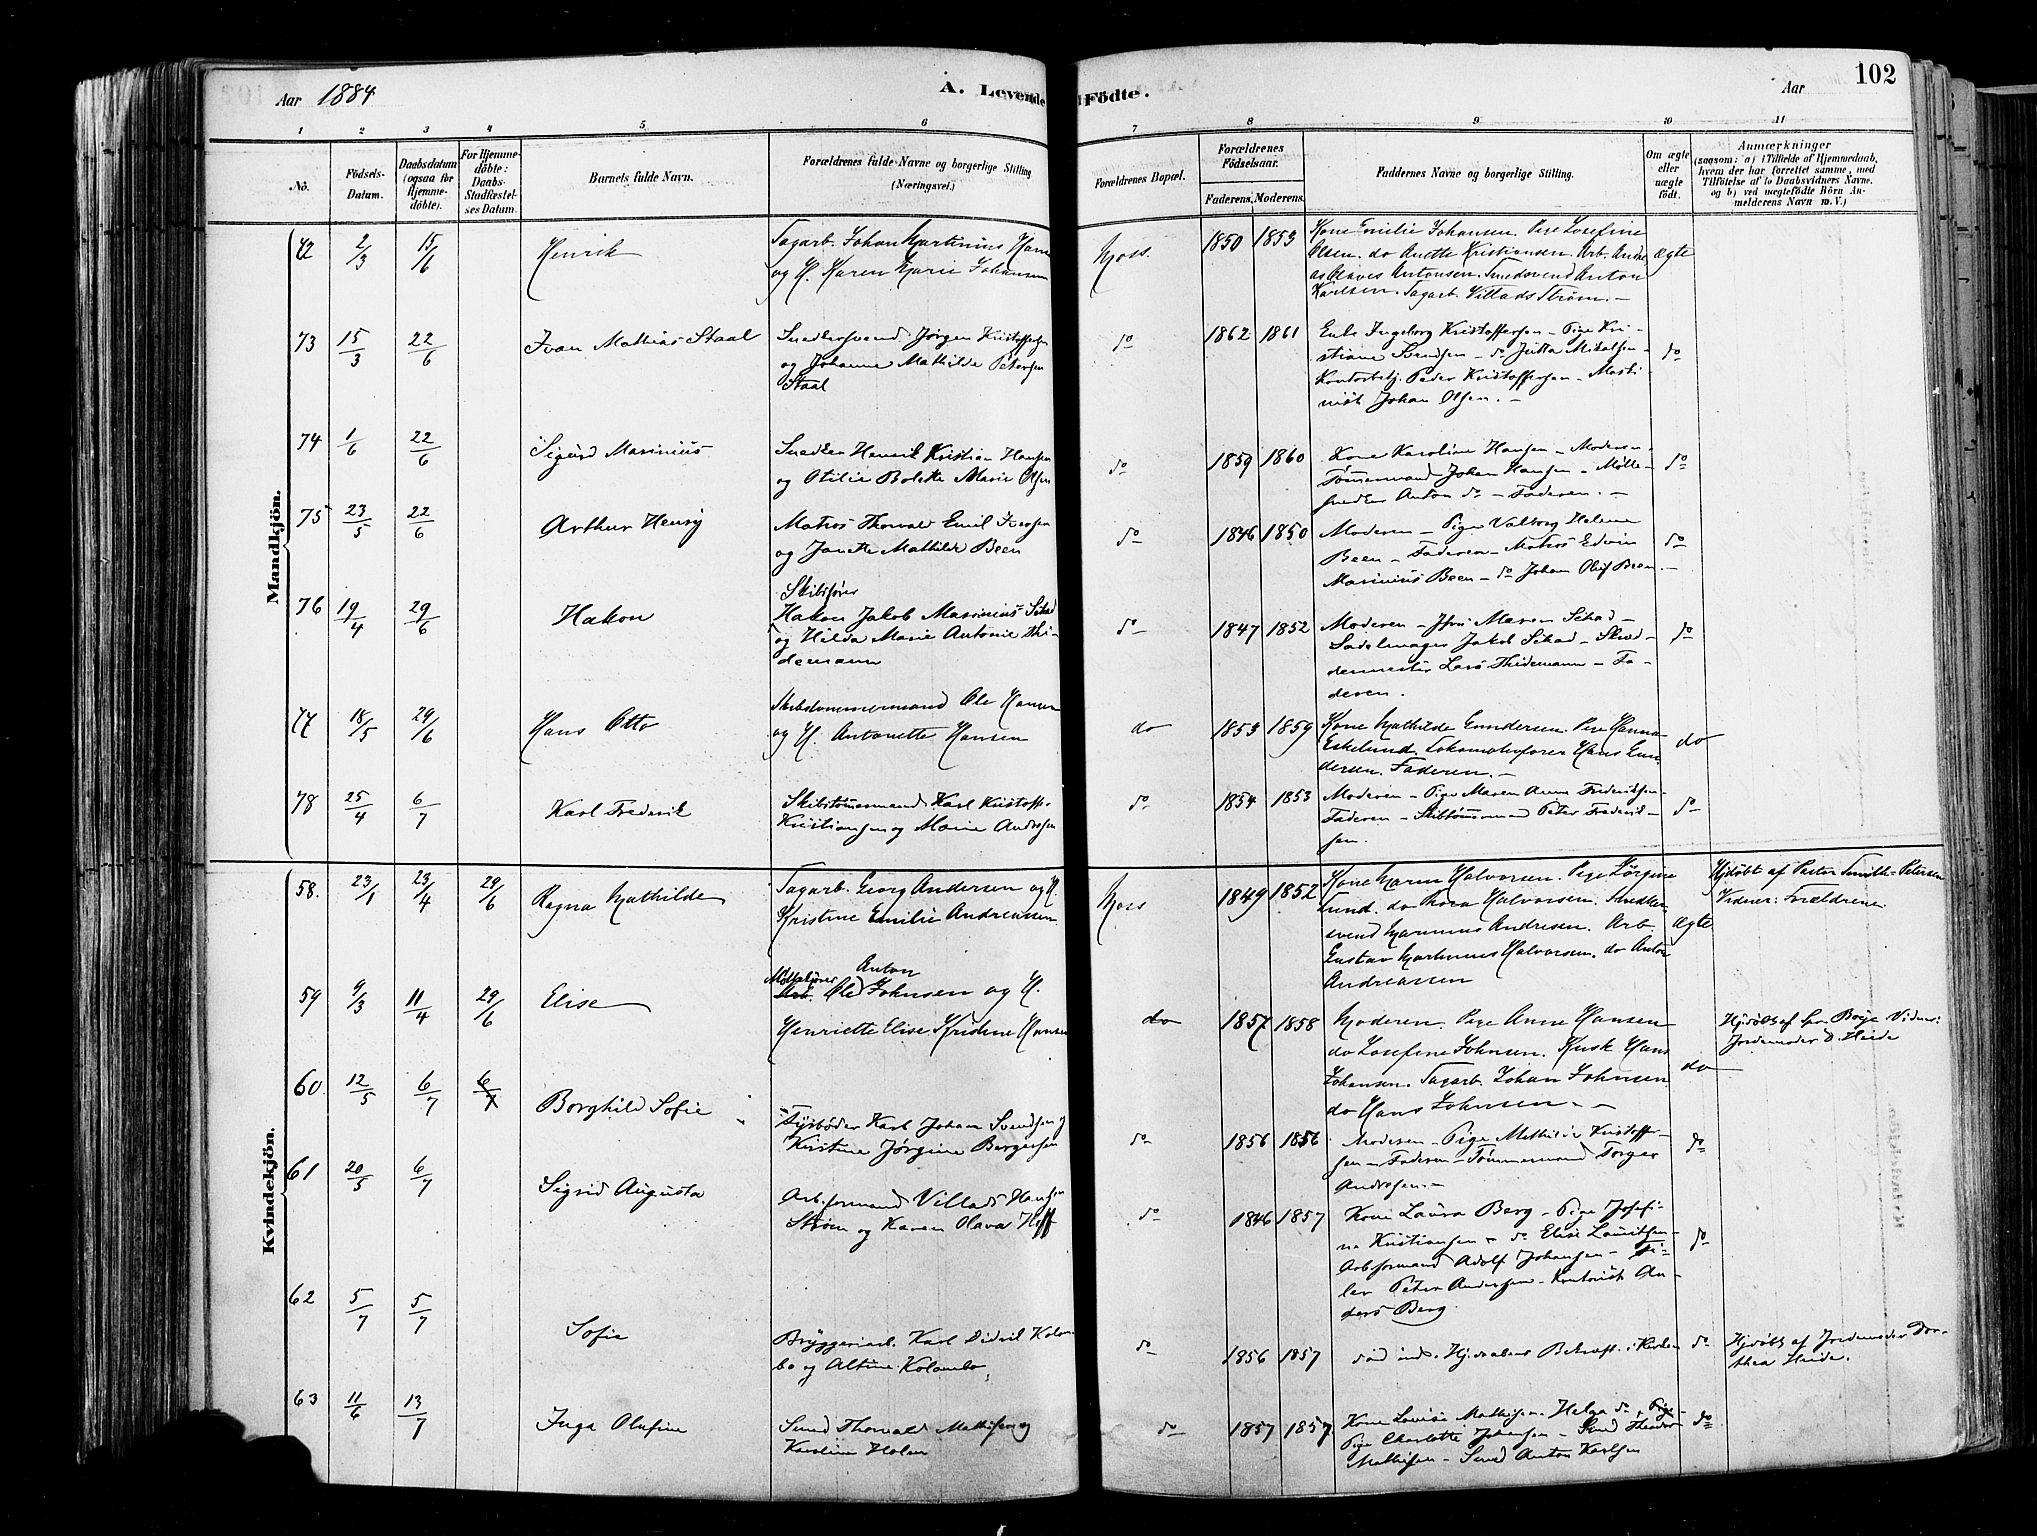 Aar 1884
A. Levende Födte.
Aar
102
1 2 3 4 5 6 7 8 9 10 11
No.
Födsels-Datum.
Daabsdatum (ogsaa for Hjemmedöbte).
For Hjemmedöbte: Daabs-Stadfæstelses Datum.
Barnets fulde Navn.
Forældrenes fulde Navne og borgerlige Stilling (Næringsvei.)
Forældrenes Bopæl.
Forældrenes Födselsaar.
Faderens. Moderens.
Faddernes Navne og borgerlige Stilling.
Om ægte eller uægte födt.
Anmærkninger
(saasom: a) i Tilfælde af Hjemmedaab,
hvem der har forrettet samme, med
Tilföielse af to Daabsvidners Navne,
og b) ved uægtefödte Börn An-
melderens Navn m. V.)
Mandkjön.
72 2/3 15/6 Henrik
Sagarb. Johan Martinius Hans
og H. Karen Marie Johansen
Moss. 1850 1853
Kone Emilie Johansen. Pige Josefine
Olsen. do Anette Kristiansen. Arb. Andre
as Antonsen. Smedsvend Anton
Karlsen. Sagarb. Villads Strøm. —
ægte
73 15/3 22/6 Ivan Mathias Staal
Snedkersvend Jørgen Kristoffersen
og Johanne Mathilde Petersen
Staal
do 1862 1861
Enke Ingeborg Kristoffersen — Pige Kri-
stiane Svendsen — do Jutta Mikalsen —
Kontorbetj. Peder Kristoffersen — Maski-
nist Johan Olsen. —
do
74 1/6 22/6 Sigurd Marinius
Snedker Henrik Kristian Hansen
og Otilie Bolette Marie Olsen
do 1859 1860
Kone Karoline Hansen — Moderen —
Tömmermand Johan Hansen — Mølle-
snedker Anton do — Faderen. —
do
75 23/5 22/6 Arthur Henry
Matros Thorvald Emil Iversen
og Janette Mathilde Been
do 1846 1850
Moderen — Pige Valborg Helene
Been — Faderen — Matros Edvin
Marinius Been — do Johan Oluf Been. —
do
76 19/4 29/6 Hakon
Skibsfører
Hakon Jakob Marinius
og Hilda Marie Antonie Thi-
demann
do 1847 1852
Moderen — Jfr. Maren
Sadelmager Jakob
dermester Lars Thidemann — Fa-
deren.
do
77 18/5 29/6 Hans Otto
Skibstømmermand Ole Hansen
og H. Antonette Hansen
do 1853 1859
Kone Mathilde Gundersen. Pige Hanna
Eskelund. Lokomotivfører Hans Gun-
dersen. Faderen. —
do
78 25/4 6/7 Karl Frederik
Skibstømmermand Karl Kristoff.
Kristiansen og Marie Andresen
do 1854 1853
Moderen — Pige Maren Anna Frederiksen —
Faderen — Skibstømmermand Peter Frederik-
sen.
do
Kvindekjön.
58. 23/1 23/4 29/6 Ragna Mathilde
Sagarb. Georg Andersen og H.
Kristine Emilie Andreassen
Moss 1849 1852
Kone Maren Halvorsen. Pige Jørgine
Lund. do Thora Halvorsen. Snedker-
svend Marinius Andresen. Arb.
Gustav Martinius Halvorsen. do Anton
Andreassen
ægte
Hjdøbt af Pastor Smith-Petersen
Vidner: Forældrene.
59 9/3 11/4 29/6 Elise
Anton
Arb. Ole Johnsen og H.
Henriette Elise Kristine Hansen
do 1857 1858
Moderen. Pige Anne Hansen
do Josefine Johnsen. Kusk Hans
Johansen. Sagarb. Johan Johnsen
do Hans Johnsen. —
do
Hjdøbt af Spr. Boye Vidner:
Jordemoder D. Heide
60. 12/5 6/7 6/7 Borghild Sofie
Fyrbøder Karl Johan Svendsen og
Kristine Jørgine Bergersen
do 1856 1856
Moderen — Pige Mathilde Kristoffer-
sen — Faderen — Tømmermand Torger
Andresen. —
do
61 20/5 6/7 Sigrid Augusta
Arb.formand Villads Hansen
Strøm og Karen Olava Hoff
do 1846 1857
Kone Laura Berg — Pige Josefi-
ne Kristiansen — do Elise Lauritsen —
Arb.formand Adolf Johansen —
ler Peter Andersen — Kontorist An-
ders Berg.
do
62 5/7 5/7 Sofie
Bryggeriarb. Karl Didrik Kolom-
bo og Altine Kolombo.
do 1856 1857
død ind. Hj.daabens Bekræft. i Kirken
do
Hjdøbt af Jordemoder Doro-
thea Heide.
63 11/6 13/7 Inga Olufine
Smed Thorvald Mathisen og
Karoline Holm
do 1857 1857
Kone Lovise Mathisen. Helga do, Pige
Pige Charlotte Johansen — Smed Theodor
Mathisen — Smed Anton Karlsen
do